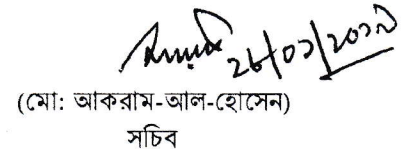 ২৮/০১/২০১৯
(মো: আকরাম-আল-হোসেন)
সচিব